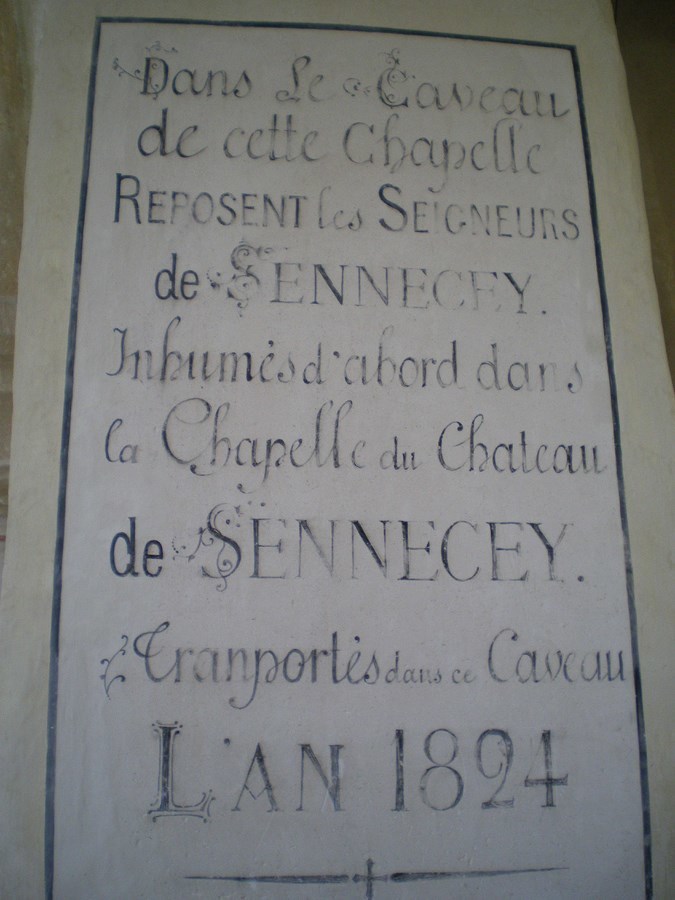 Dans Le Caveau
de cette Chapelle
REPOSENT les SEIGNEURS
de SENNECEY.
Inhumés d'abord dans
la Chapelle du Chateau
de SENNECEY.
Tranportés dans ce Caveau
L'AN 1824